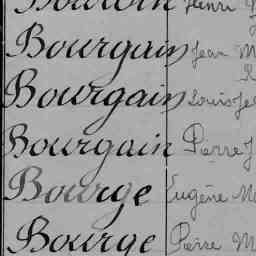 Henri
Bourgain Jean M
Bourgain Louis Je
Bourgain Pierre J
Bourge Eugène Ma
Bourge Pierre M